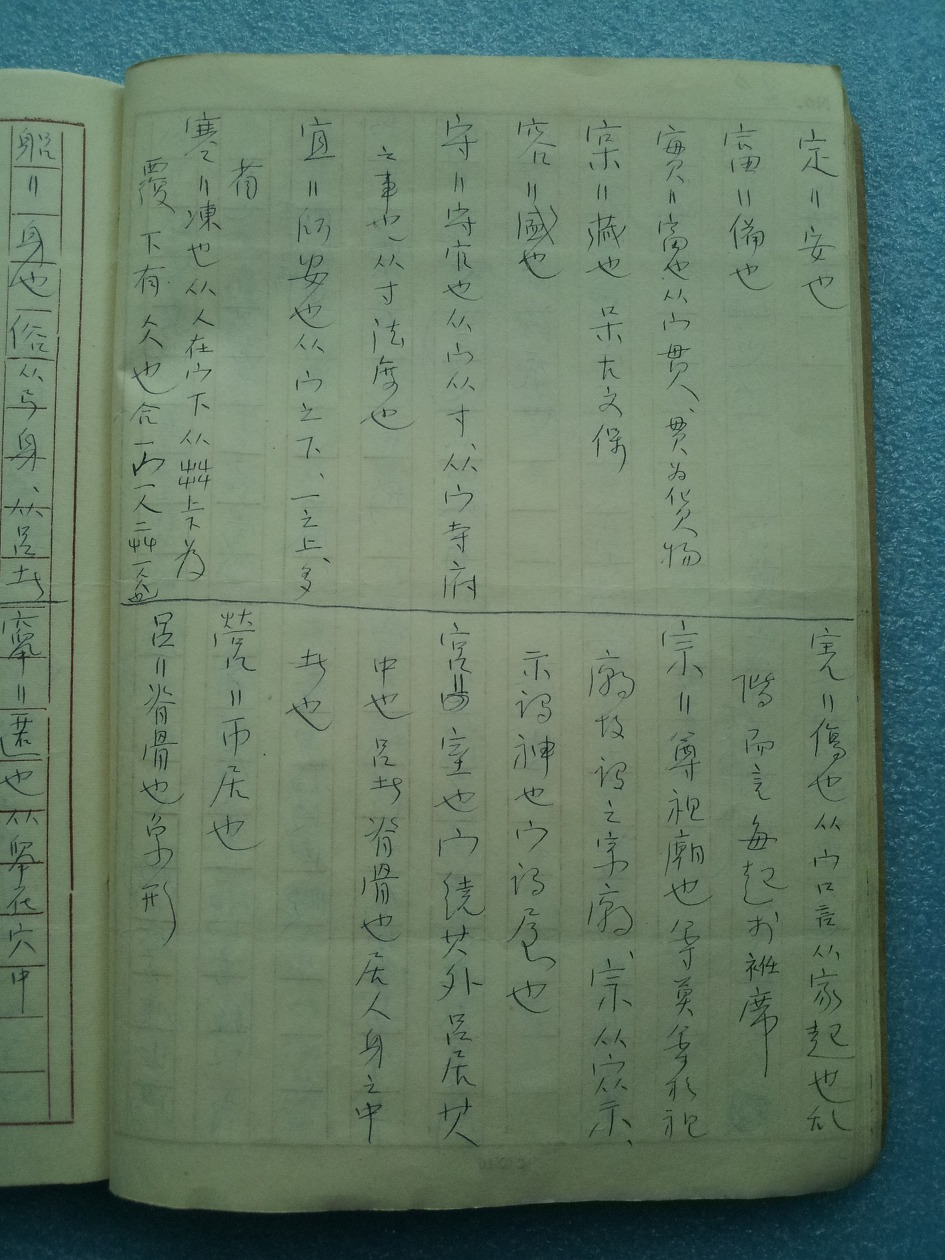 定〃安也
富〃備也
實〃富也从宀貫、貫为貨物
宲〃藏也 呆古文保
容〃盛也
守〃守官也从宀从寸、从宀寺府
之事也、从寸法度也
宜〃所安也从宀之下、一之上、多
省
寒〃凍也从人在宀下从茻上下为
覆下有仌也合一宀一人二艸一仌
害〃傷也从宀口言从家起也
階而言每起於衽席
宗〃尊祖廟也尊莫尊於祖
廟故謂之宗廟、宗从宀示、
示謂神也宀謂屋也
宮〃室也宀繞其外呂居其
中也呂者脊骨也居人身之中
者也
營〃帀居也
呂〃脊骨也象形
躳〃身也俗从弓身、从呂者
〃匿也从 在穴中